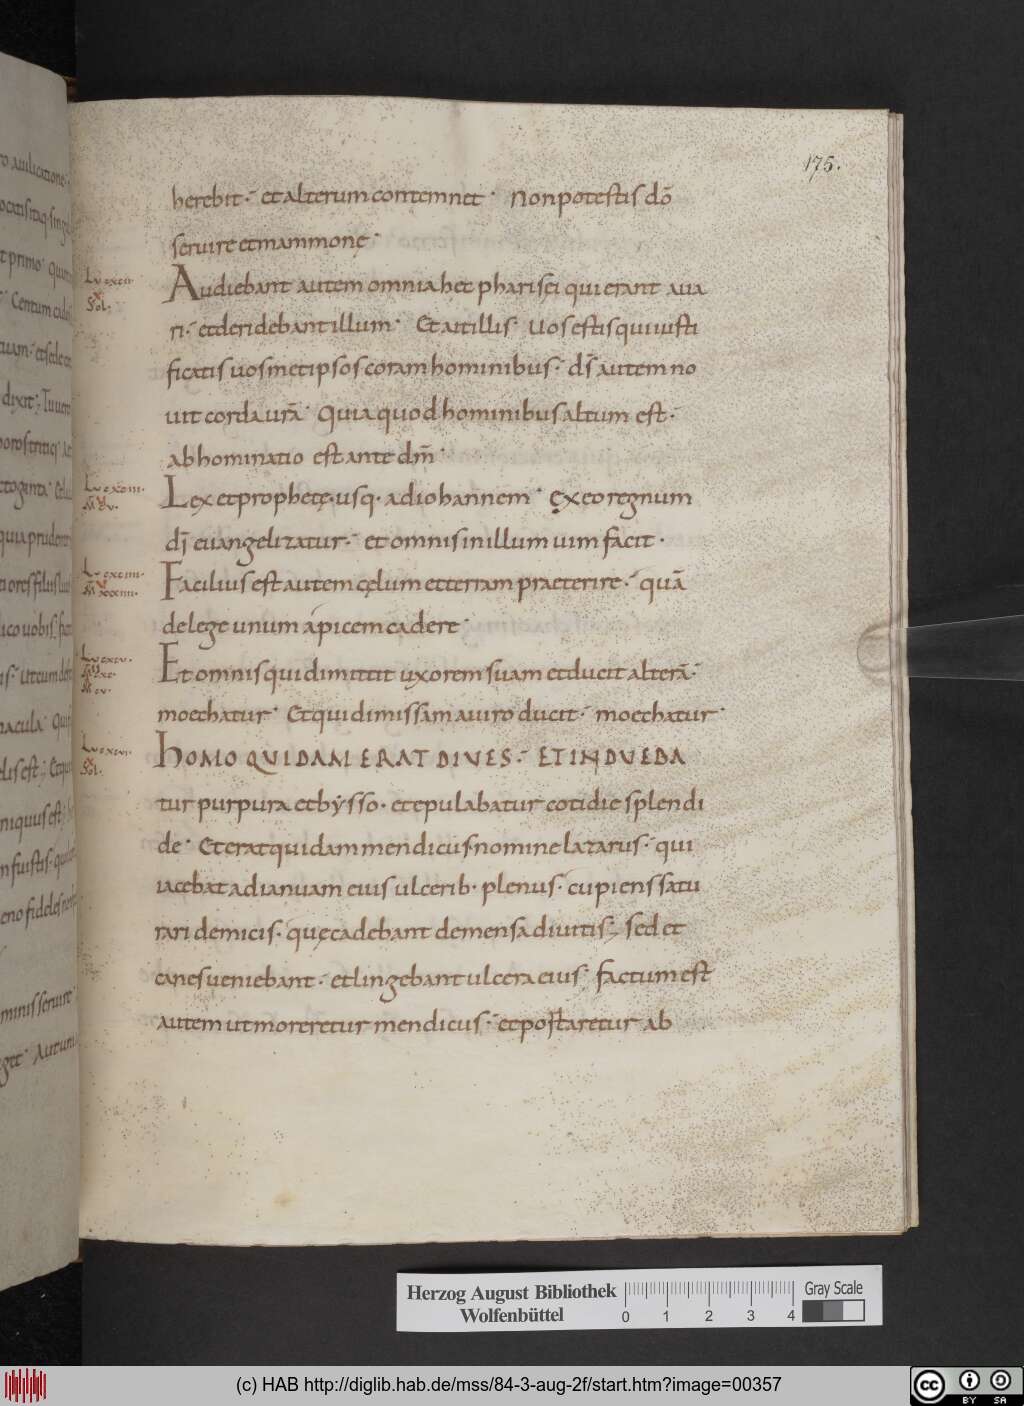 175.
herebit· et alterum contemnet· Non potestis dō
seruire et mammonę·
Audiebant autem omnia hec pharisęi qui erant aua
ri· et deridebant illum· Et ait illis· Uos estis qui iusti
ficatis uosmetipsos coram hominibus· ds̄ autem no
uit corda urā· Quia quod hominibus altum est·
abhominatio est ante dm̄·
Lex et prophetę· usq· ad iohannem· ęx eo regnum
dī euangelizatur· et omnis in illum uim facit·
Facilius est autem cęlum et terram praeterire· quā
de lege unum apicem cadere·
Et omnis qui dimittit uxorem suam et ducit alterā·
moechatur· Et qui dimissam a uiro ducit· moechatur·
HOMO QUIDAM ERAT DIUES· ET INDUEBA
tur purpura et bẏsso· et epulabatur cotidie splendi
de· Et erat quidam mendicus nomine lazarus· qui
iacebat ad ianuam eius ulcerib· plenus· cupiens satu
rari de micis· quę cadebant de mensa diuitis· sed et
canes ueniebant· et lingebant ulcera eius· factum est
autem ut moreretur mendicus· et portaretur ab
Herzog August Bibliothek
Wolfenbüttel
0 1 2 3 4
Gray Scale
(c) HAB http://diglib.hab.de/mss/84-3-aug-2f/start.htm?image=00357
cc BY SA